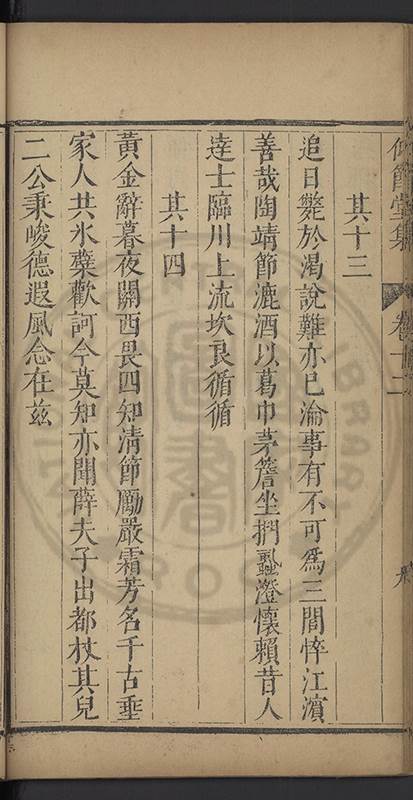 仰節堂集 卷十二
其十三
追日斃於渴說難亦已淪事有不可爲三閭悴江濱
善哉陶靖節漉酒以葛巾茅簷坐捫蝨澄懷賴昔人
達士臨川上流坎良循循
其十四
黃金辭暮夜關西畏四知清節勵嚴霜芳名千古垂
家人共氷蘗歡訶今莫知亦聞薛夫子出都杖其兒
二公秉峻德遐風念在茲